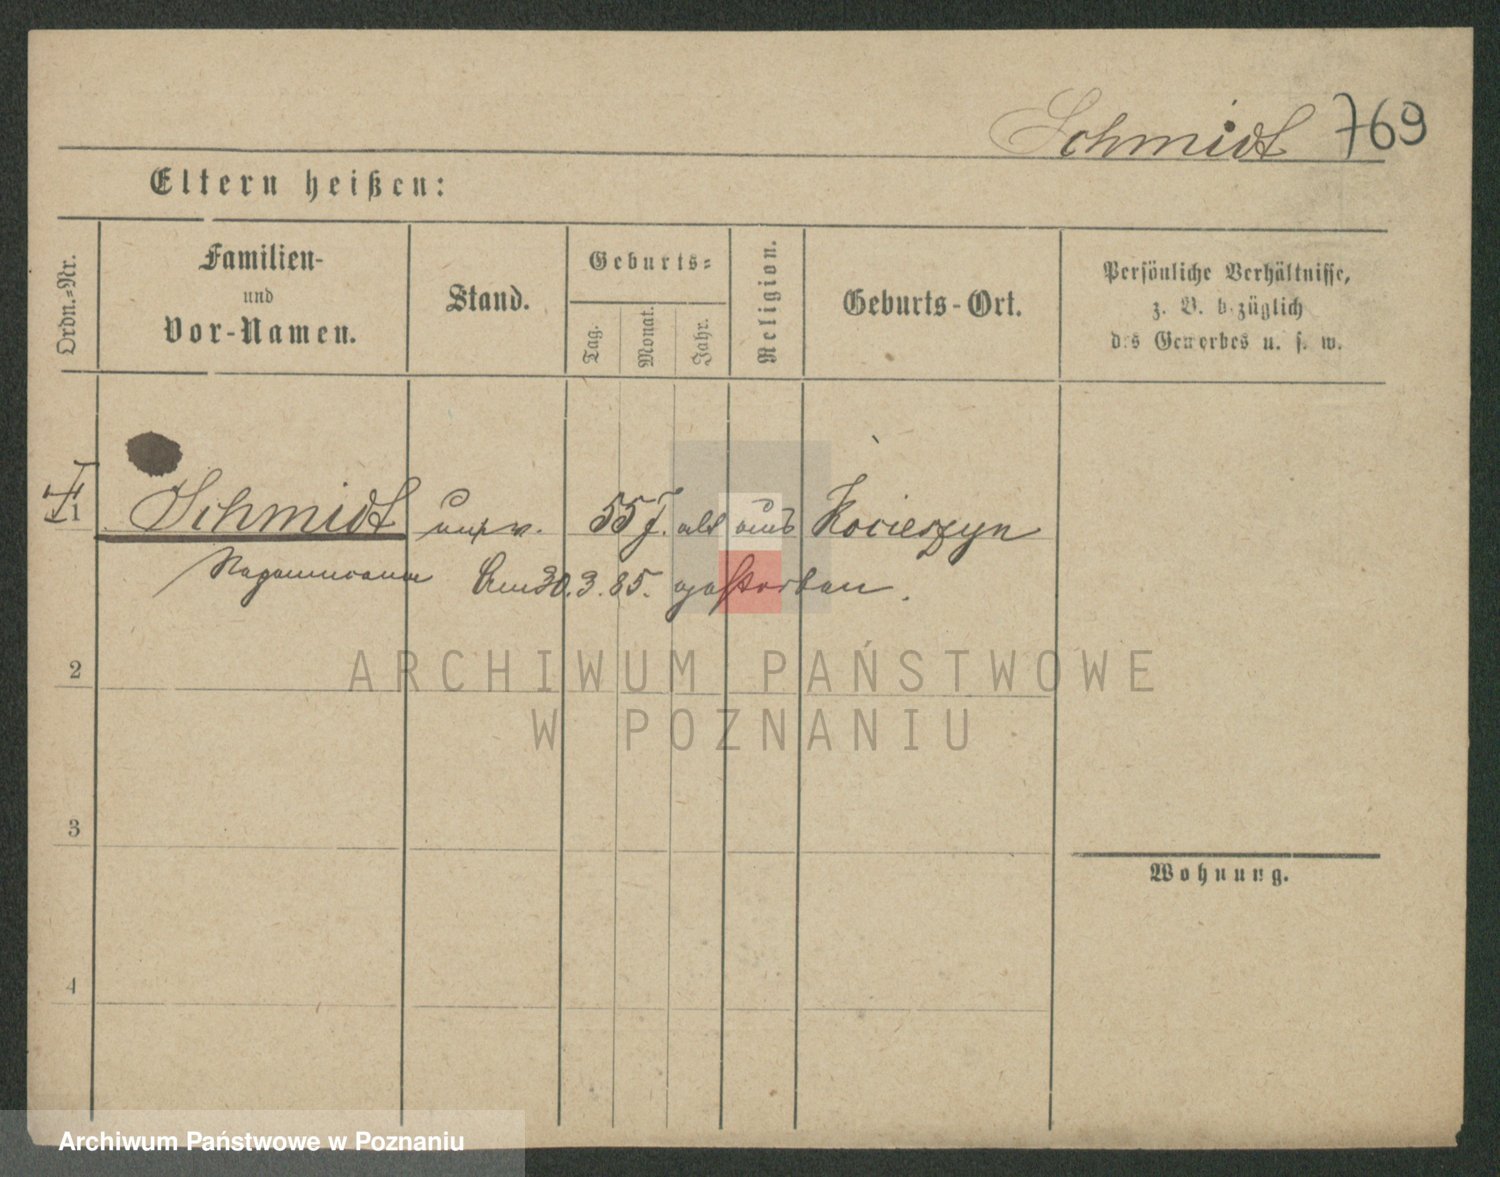 Schmidt 769
Eltern heißen:
Ordn.-Nr.
Familien-
und
Vor-Namen.
Stand.
Geburts-
Tag.
Monat.
Jahr.
Religion.
Geburts-Ort.
Persönliche Verhältnisse,
z. B. bezüglich
des Gewerbes u. s. w.
1 Schmidt unv. 55 J. alt aus Kocieszyn
Am 30.3.85. gestorben.
2
3
4
Wohnung.
ARCHIWUM PAŃSTWOWE
W POZNANIU
Archiwum Państwowe w Poznaniu